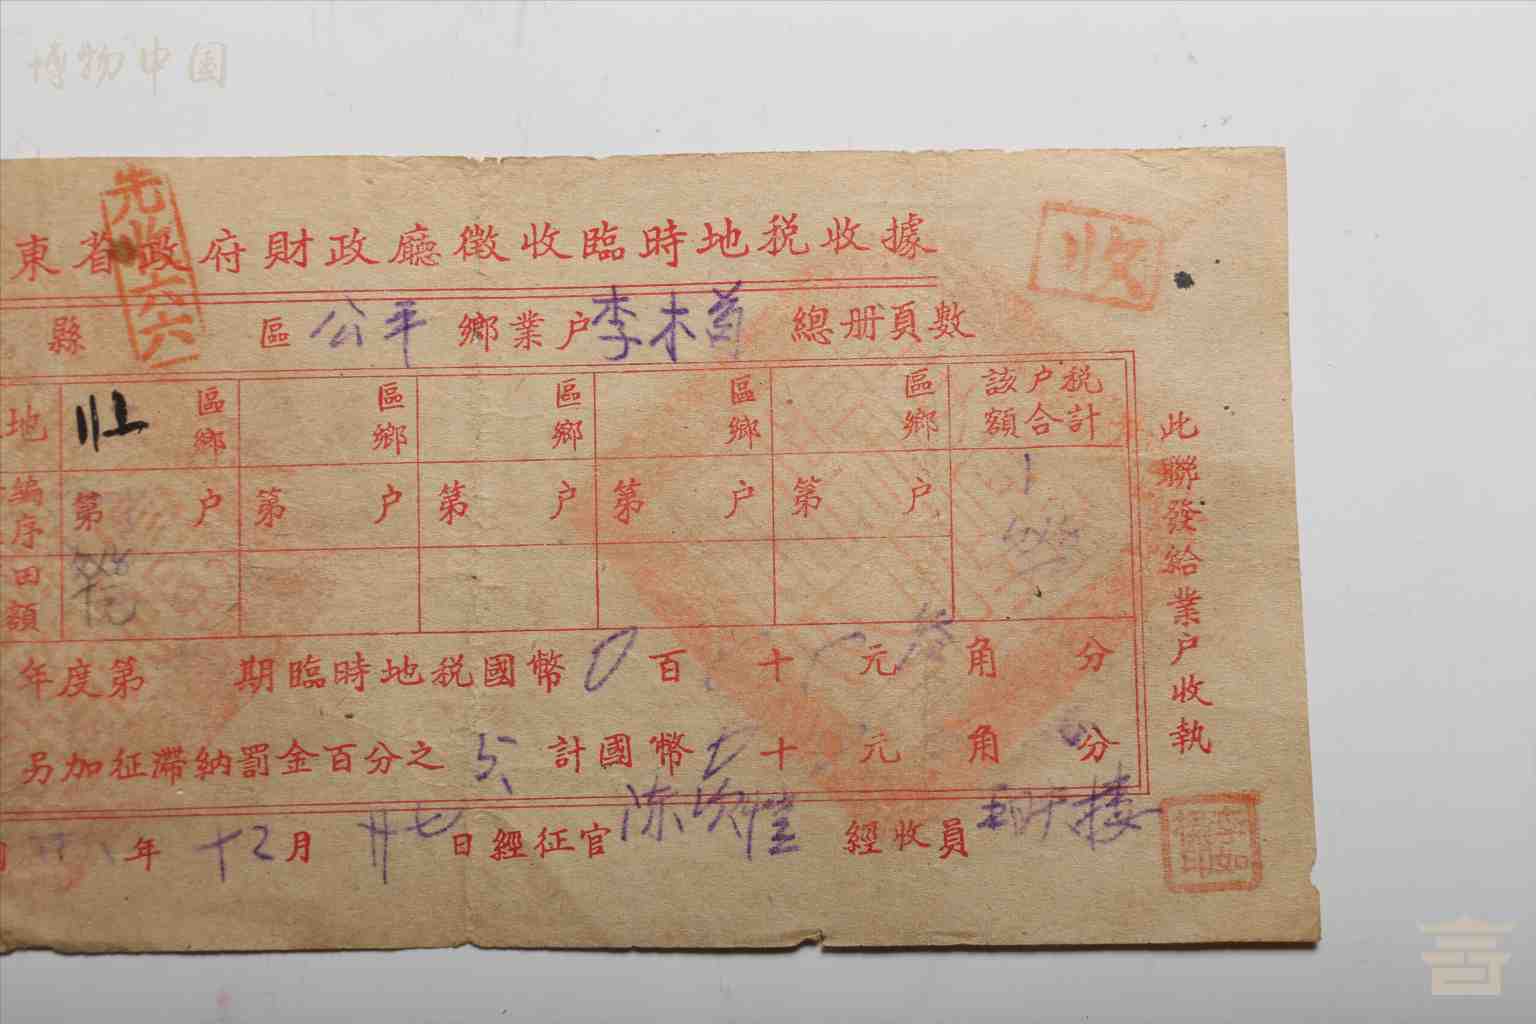 博物中国
東省政府財政廳徵收臨時地税收據
收
縣 區 公平 鄉業户 李木 總册頁數
地 區鄉 區鄉 區鄉 區鄉 區鄉 該户税額合計
編序 第 户 第 户 第 户 第 户 第 户
田額
年度第 期臨時地税國幣 0 百 十 元 角 分
另加征滯納罰金百分之 5 計國幣 0 十 元 角 分
年 十二 月 廿七 日經征官 陈 經收員
此聯發給業户收執